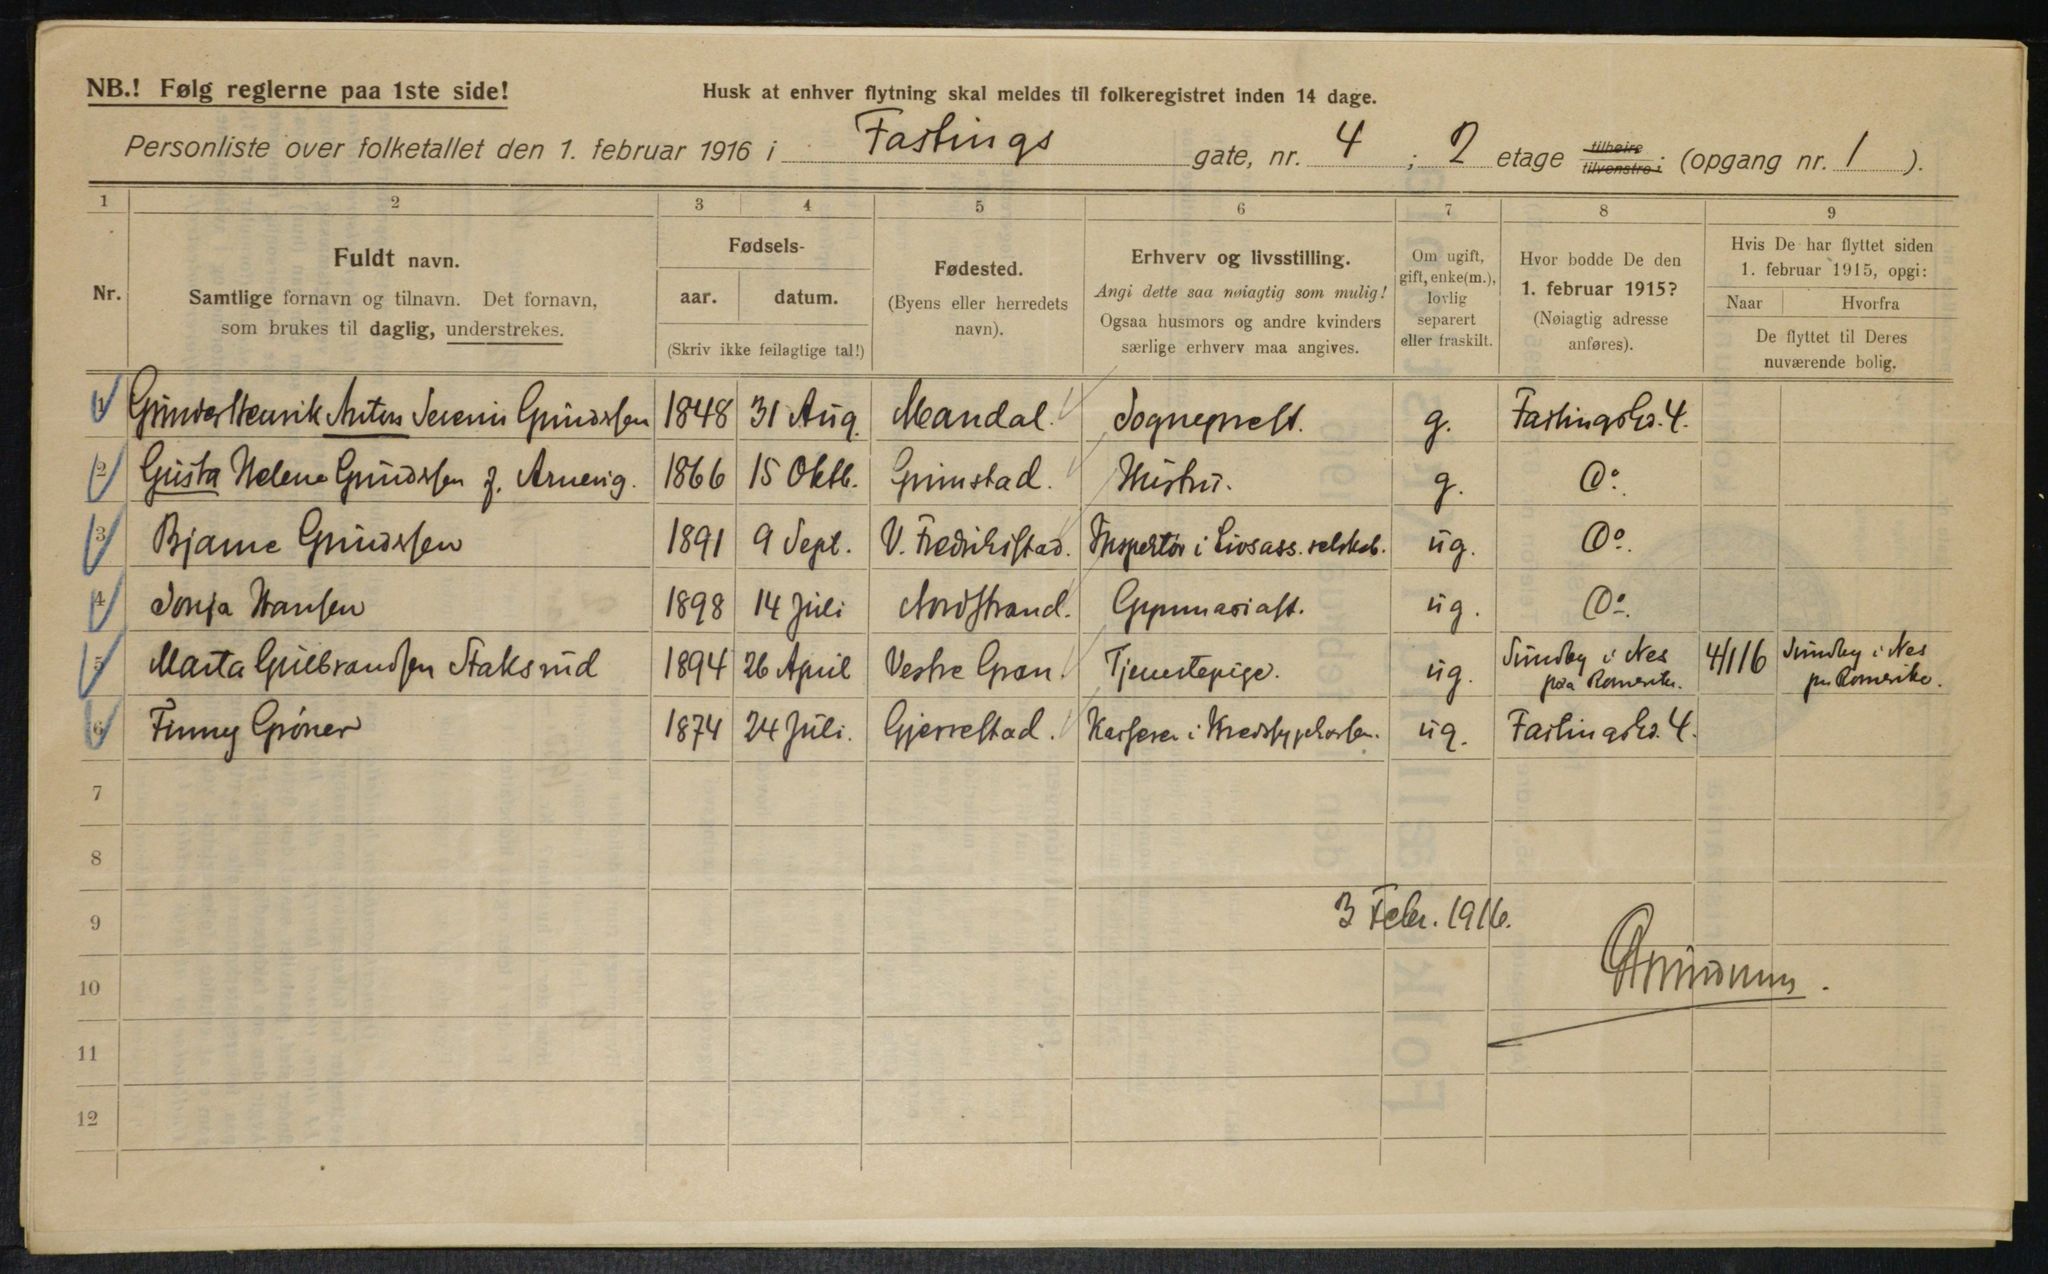 NB.! Følg reglerne paa 1ste side!
Husk at enhver flytning skal meldes til folkeregistret inden 14 dage.
Personliste over folketallet den 1. februar 1916 i Fastings gate, nr. 4 ; 2 etage tilhøire tilvenstre ; (opgang nr. 1 ).
1 2 3 4 5 6 7 8 9
Nr.
Fuldt navn.
Samtlige fornavn og tilnavn. Det fornavn,
som brukes til daglig, understrekes.
Fødsels-
aar. datum.
(Skriv ikke feilagtige tal!)
Fødested.
(Byens eller herredets
navn).
Erhverv og livsstilling.
Angi dette saa nøiagtig som mulig!
Ogsaa husmors og andre kvinders
særlige erhverv maa angives.
Om ugift,
gift, enke(m.),
lovlig
separert
eller fraskilt.
Hvor bodde De den
1. februar 1915?
(Nøiagtig adresse
anføres).
Hvis De har flyttet siden
1. februar 1915, opgi:
Naar Hvorfra
De flyttet til Deres
nuværende bolig.
1 Henrik Anton Severin Gundersen 1848 31 Aug. Mandal. Sogneprest. g. Fastingsgd. 4.
2 Gusta Helene Gundersen f. 1866 15 Oktb. Grimstad. Hustru. g. Do.
3 Bjarne Gundersen 1891 9 Sept. V. Fredrikstad. Inspektør i Livsass. selskab. ug. Do.
4 Sonja Hansen 1898 14 Juli Nordstrand. Gymnasiast. ug. Do.
5 Marta Gulbrandsen Staksrud 1894 26 April Vestre Gran. Tjenestepige. ug. Sundby i Nes paa Romerike. 4/1 16 Sundby i Nes pa Romerike.
6 Finny Grøner 1874 24 Juli. Gjerrestad. Kasserer i Kredssygekassen. ug. Fastingsgd. 4.
7
8
9
3 Febr. 1916.
10
11
12